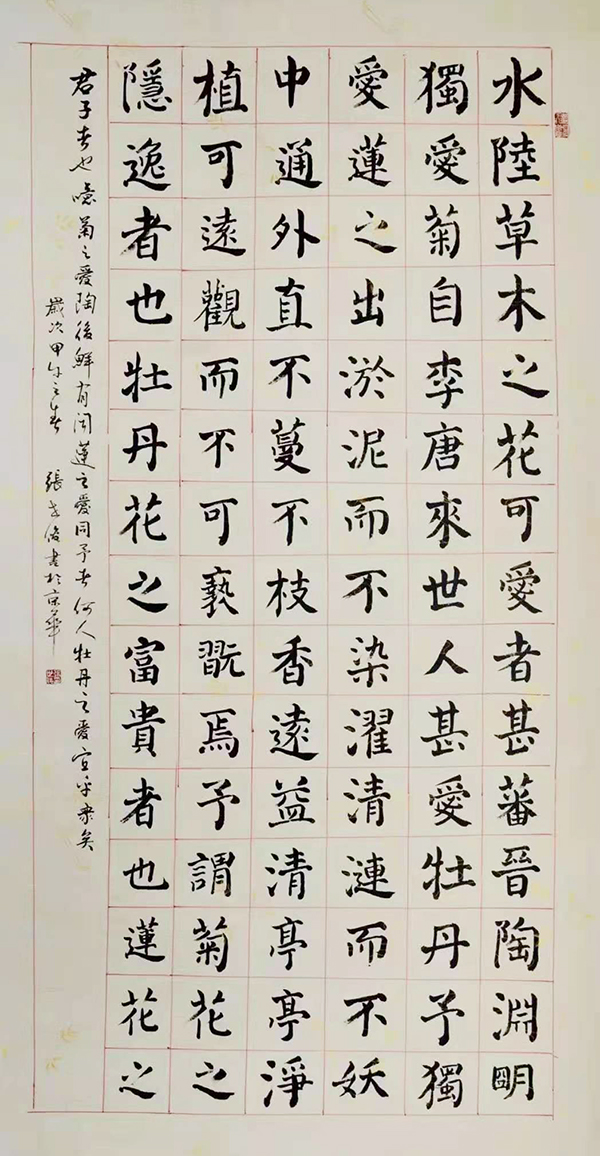 水陸草木之花可愛者甚蕃晉陶淵明
獨愛菊自李唐來世人甚愛牡丹予獨
愛蓮之出淤泥而不染濯清漣而不妖
中通外直不蔓不枝香遠益清亭亭淨
植可遠觀而不可褻翫焉予謂菊花之
隱逸者也牡丹花之富貴者也蓮花之
君子者也噫菊之愛陶後鮮有聞蓮之愛同予者何人牡丹之愛宜乎衆矣
歲次甲午之春 張俊書於京華